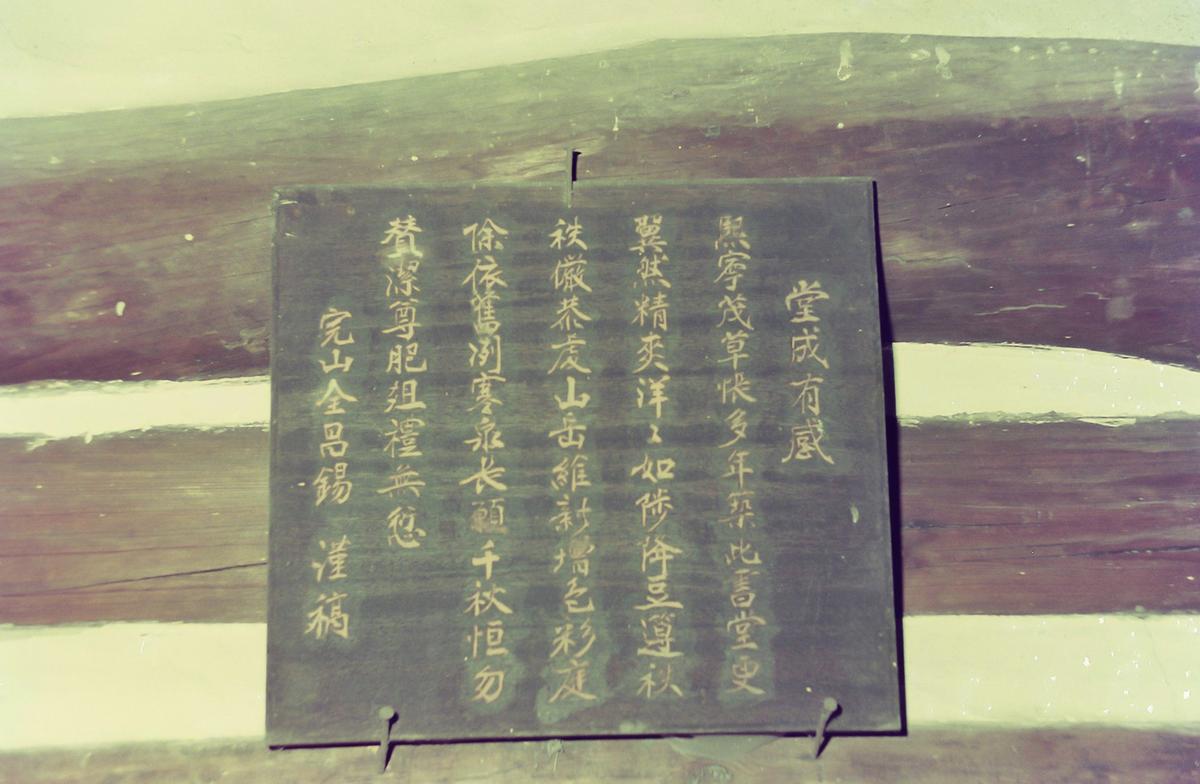 堂成有感
熙寧茂草悵多年築此書堂更
翼然精爽洋〻如陟降豆籩秩
秩儼恭虔山岳維新增色彩庭
除依舊冽寒泉長願千秋恒勿
替潔尊肥俎禮無愆
完山全昌錫 謹稿